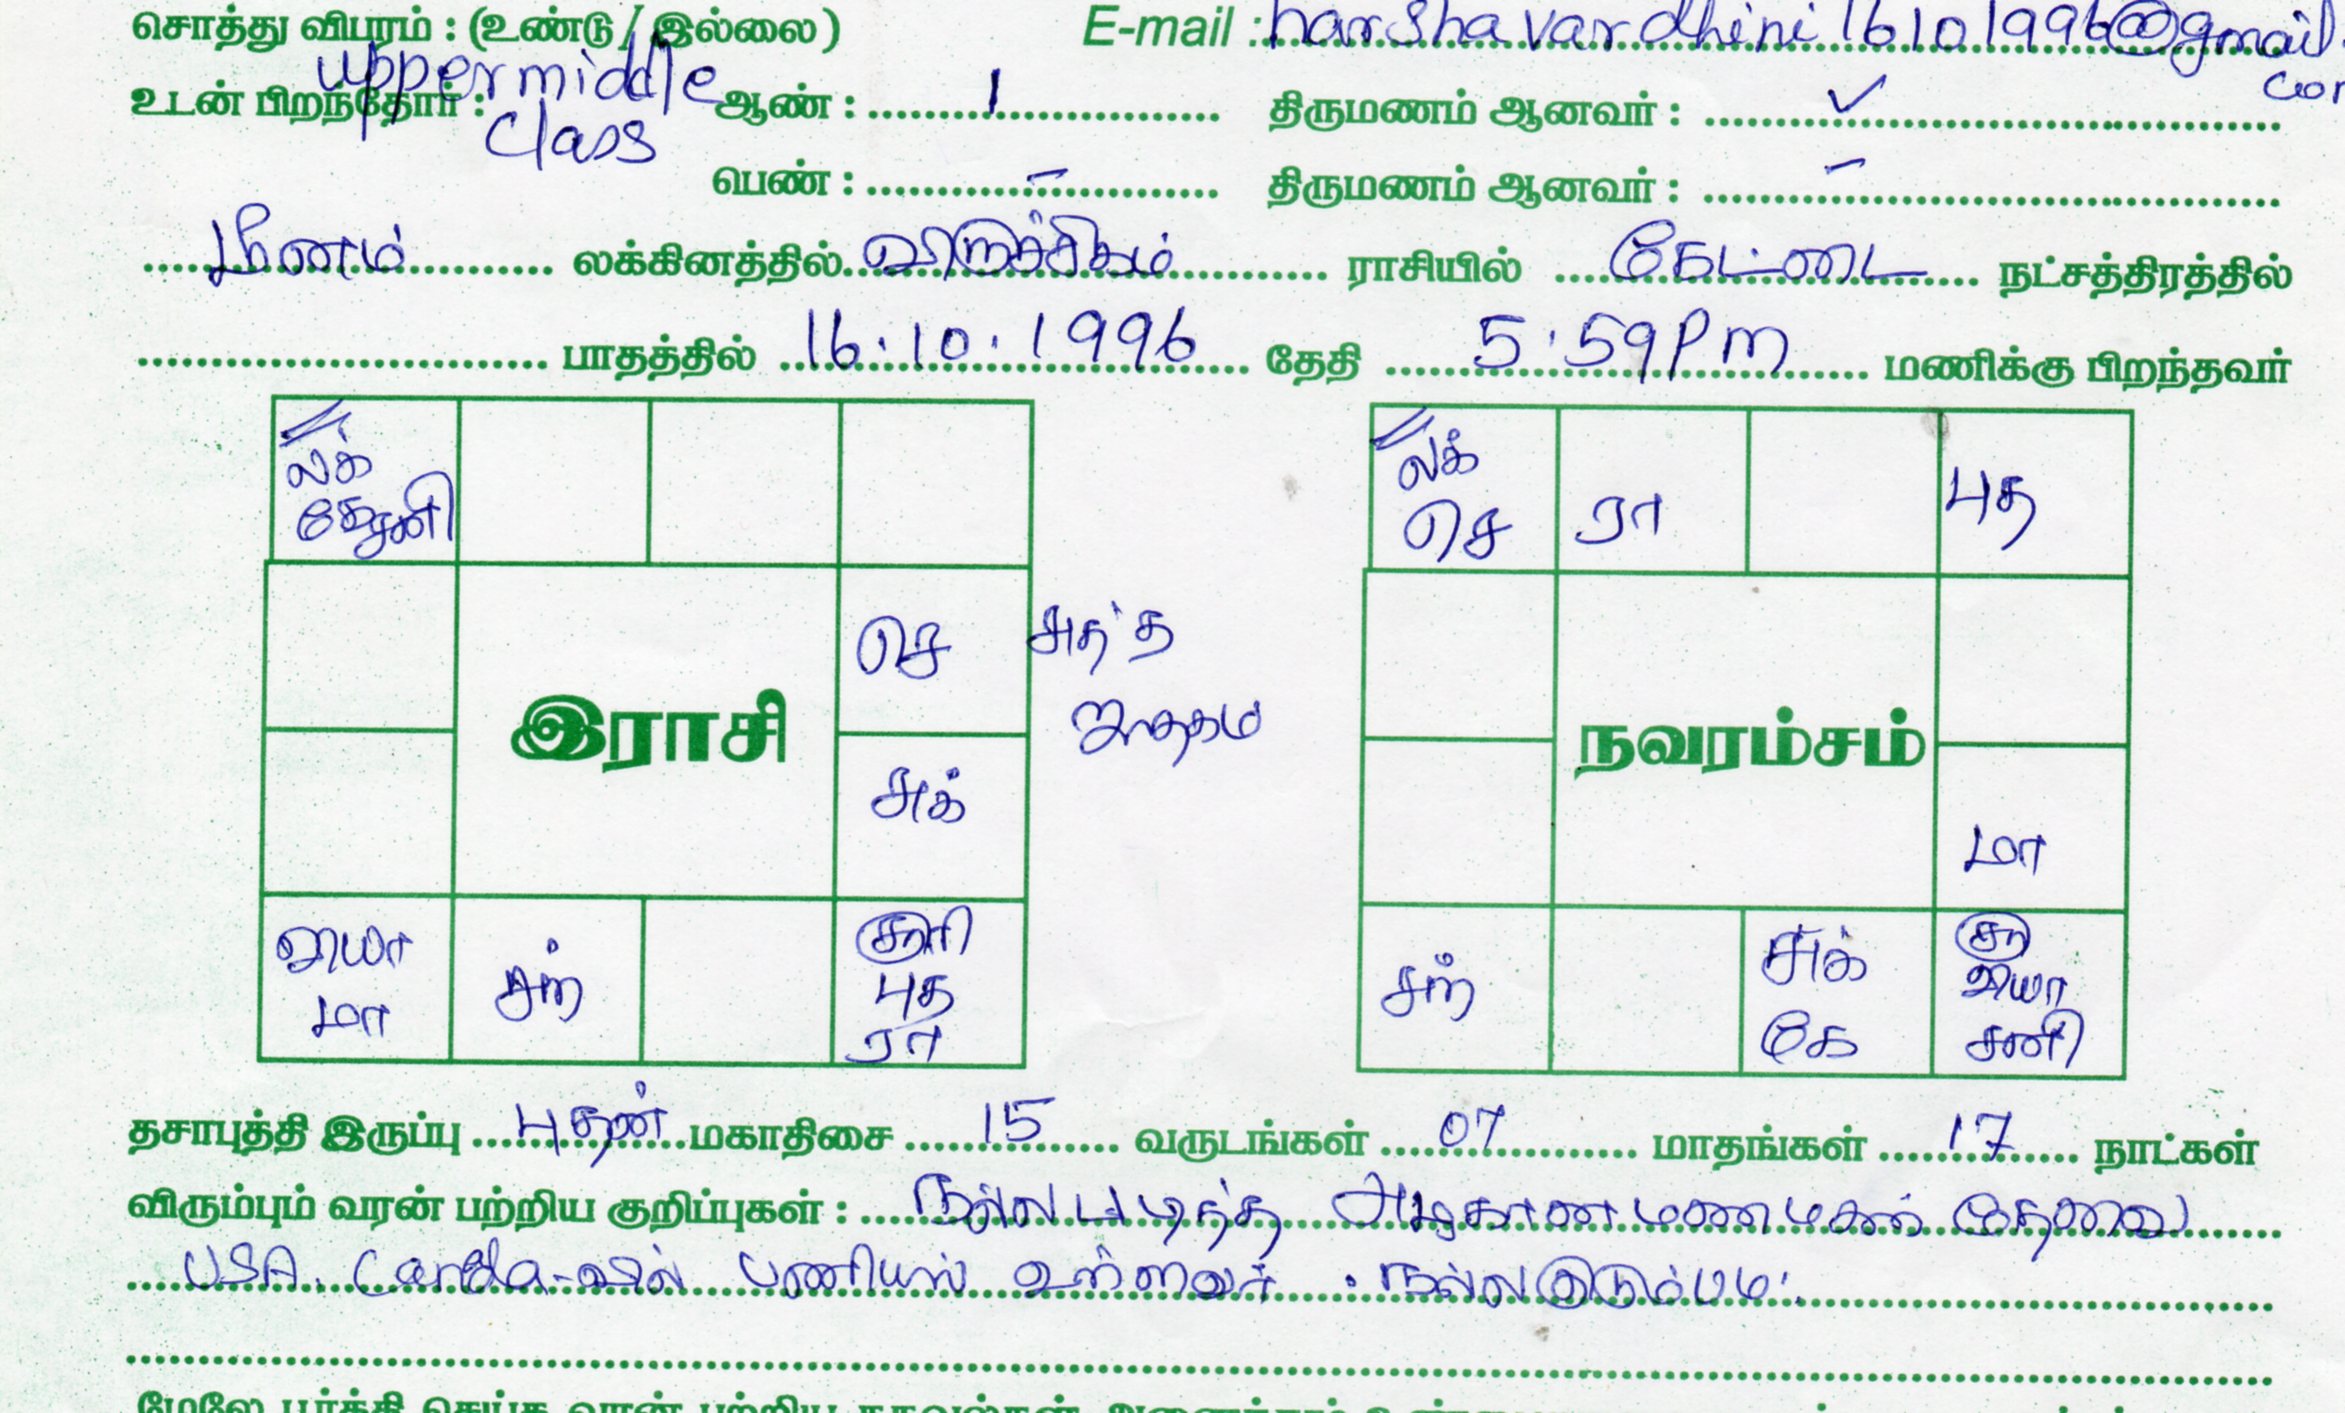 சொத்து விபரம் : (உண்டு / இல்லை) E-mail : harshavardhini16101996@gmail.
uppermiddle com
உடன் பிறந்தோர் : ஆண் : 1 திருமணம் ஆனவர் : ✓
class
பெண் : – திருமணம் ஆனவர் : –
மீனம் லக்கினத்தில் விருச்சிகம் ராசியில் கேட்டை நட்சத்திரத்தில்
பாதத்தில் 16.10.1996 தேதி 5.59pm மணிக்கு பிறந்தவர்
லக்
லக் செ ரா புத
செ
சுக்
இராசி நவரம்சம்
மா
சூரி சூ
மா சந் புத சந் சுக் சனி
ரா கே
தசாபுத்தி இருப்பு புதன் மகாதிசை 15 வருடங்கள் 07 மாதங்கள் 17 நாட்கள்
விரும்பும் வரன் பற்றிய குறிப்புகள் : நல்ல படித்த அழகான மணமகன் தேவை
USA. Canda-வில் பணியில் உள்ளவர். நல்ல குடும்பம்.